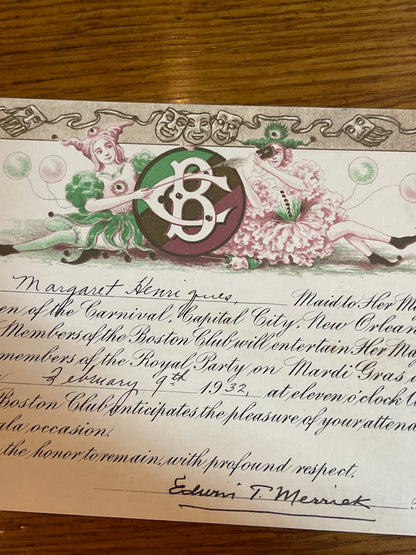 BC
Margaret Henriques, Maid to Her Ma
en of the Carnival, Capital City, New Orlean
Members of the Boston Club will entertain Her Maj
members of the Royal Party on Mardi Gras,
February 9th 1932, at eleven o'clock
Boston Club anticipates the pleasure of your attend
ala occasion.
the honor to remain, with profound respect,
Edwin T. Merrick